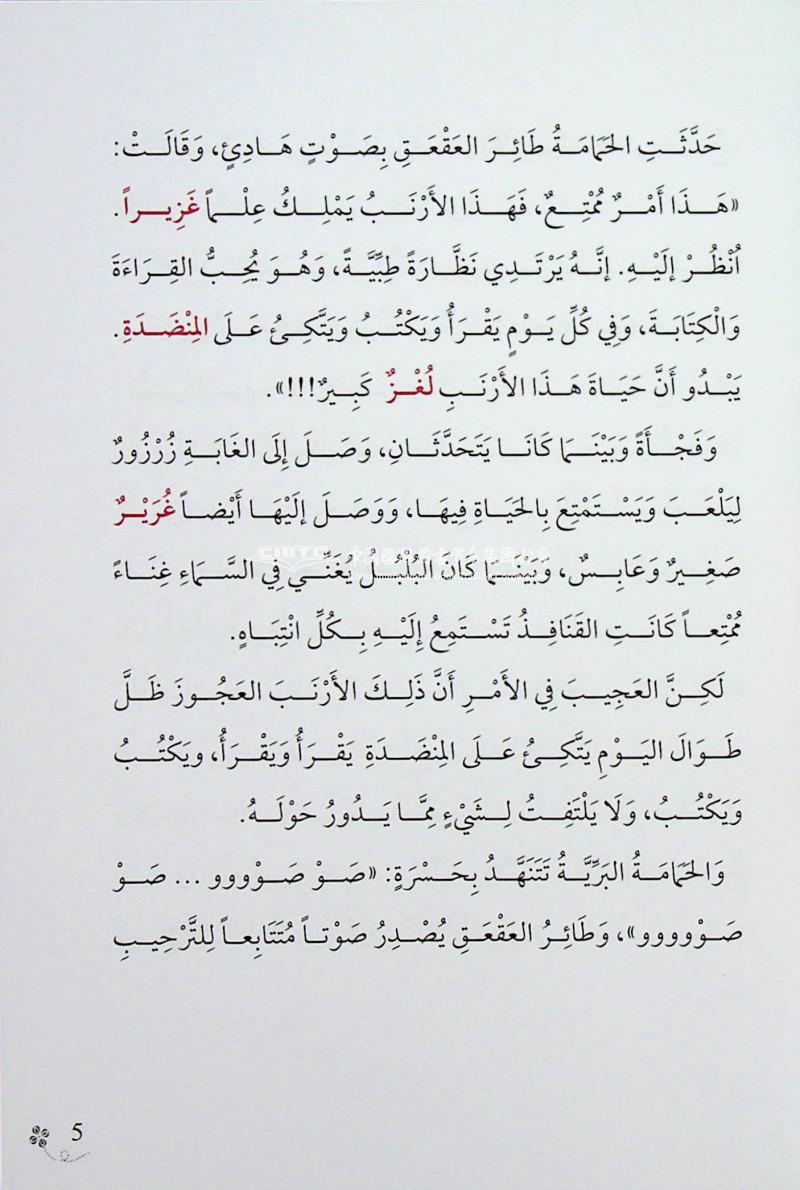 حَدَّثَتِ الحَمَامَةُ طَائِرَ العَقْعَقِ بِصَوْتٍ هَادِئٍ، وَقَالَتْ:
«هَذَا أَمْرٌ مُمْتِعٌ، فَهَذَا الأَرْنَبُ يَمْلِكُ عِلْماً غَزِيراً.
اُنْظُرْ إلَيْهِ. إنَّهُ يَرْتَدِي نَظَّارَةً طِبِّيَّةً، وَهُوَ يُحِبُّ القِرَاءَةَ
وَالْكِتَابَةَ، وَفِي كُلِّ يَوْمٍ يَقْرَأُ وَيَكْتُبُ وَيَتَّكِئُ عَلَى المِنْضَدَةِ.
يَبْدُو أَنَّ حَيَاةَ هَذَا الأَرْنَبِ لُغْزٌ كَبِيرٌ!!!».
وَفَجْأَةً وَبَيْنَمَا كَانَا يَتَحَدَّثَانِ، وَصَلَ إِلَى الغَابَةِ زُرْزُورٌ
لِيَلْعَبَ وَيَسْتَمْتِعَ بِالحَيَاةِ فِيهَا، وَوَصَلَ إلَيْهَا أَيْضاً غُرَيْرٌ
صَغِيرٌ وَعَابِسٌ، وَبَيْنَمَا كَانَ البُلْبُلُ يُغَنِّي فِي السَّمَاءِ غِنَاءً
مُمْتِعاً كَانَتِ القَنَافِذُ تَسْتَمِعُ إِلَيْهِ بِكُلِّ انْتِبَاهٍ.
لَكِنَّ العَجِيبَ فِي الأَمْرِ أَنَّ ذَلِكَ الأَرْنَبَ العَجُوزَ ظَلَّ
طَوَالَ اليَوْمِ يَتَّكِئُ عَلَى المِنْضَدَةِ يَقْرَأُ وَيَقْرَأُ، ويَكْتُبُ
وَيَكْتُبُ، وَلَا يَلْتَفِتُ لِشَيْءٍ مِمَّا يَدُورُ حَوْلَهُ.
وَالحَمَامَةُ البَرِّيَّةُ تَتَنَهَّدُ بِحَسْرَةٍ: «صَوْ صَوْووو ... صَوْ
صَوْوووو»، وَطَائِرُ العَقْعَقِ يُصْدِرُ صَوْتاً مُتَتَابِعاً لِلتَّرْحِيبِ
5